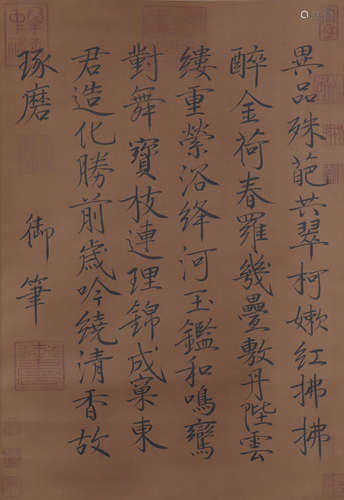 異品殊葩共翠柯嫩紅拂拂
醉金荷春羅幾疊敷丹陛雲
縷重縈浴絳河玉鑑和鳴鸞
對舞寶枝連理錦成窠東
君造化勝前歲吟繞清香故
琢磨 御筆